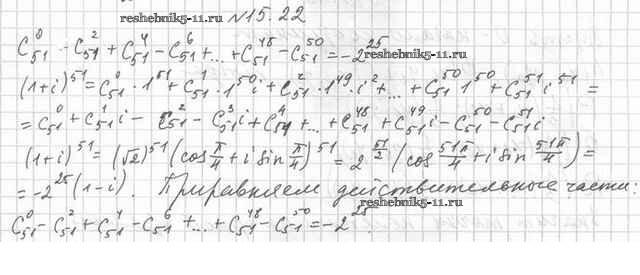 reshebnik5-11.ru
№15.22
C₅₁⁰ - C₅₁² + C₅₁⁴ - C₅₁⁶ + ... + C₅₁⁴⁸ - C₅₁⁵⁰ = -2²⁵
(1+i)⁵¹ = C₅₁⁰ · 1⁵¹ + C₅₁¹ · 1⁵⁰ i + C₅₁² · 1⁴⁹ · i² + ... + C₅₁⁵⁰ 1 · i⁵⁰ + C₅₁⁵¹ i⁵¹ =
= C₅₁⁰ + C₅₁¹ i - C₅₁² - C₅₁³ i + C₅₁⁴ + ... + C₅₁⁴⁸ + C₅₁⁴⁹ i - C₅₁⁵⁰ - C₅₁⁵¹ i
(1+i)⁵¹ = (√2)⁵¹ (cos π/4 + i sin π/4)⁵¹ = 2^(51/2) (cos 51π/4 + i sin 51π/4) =
= -2²⁵ (1-i). Приравняем действительные части:
C₅₁⁰ - C₅₁² + C₅₁⁴ - C₅₁⁶ + ... + C₅₁⁴⁸ - C₅₁⁵⁰ = -2²⁵
reshebnik5-11.ru